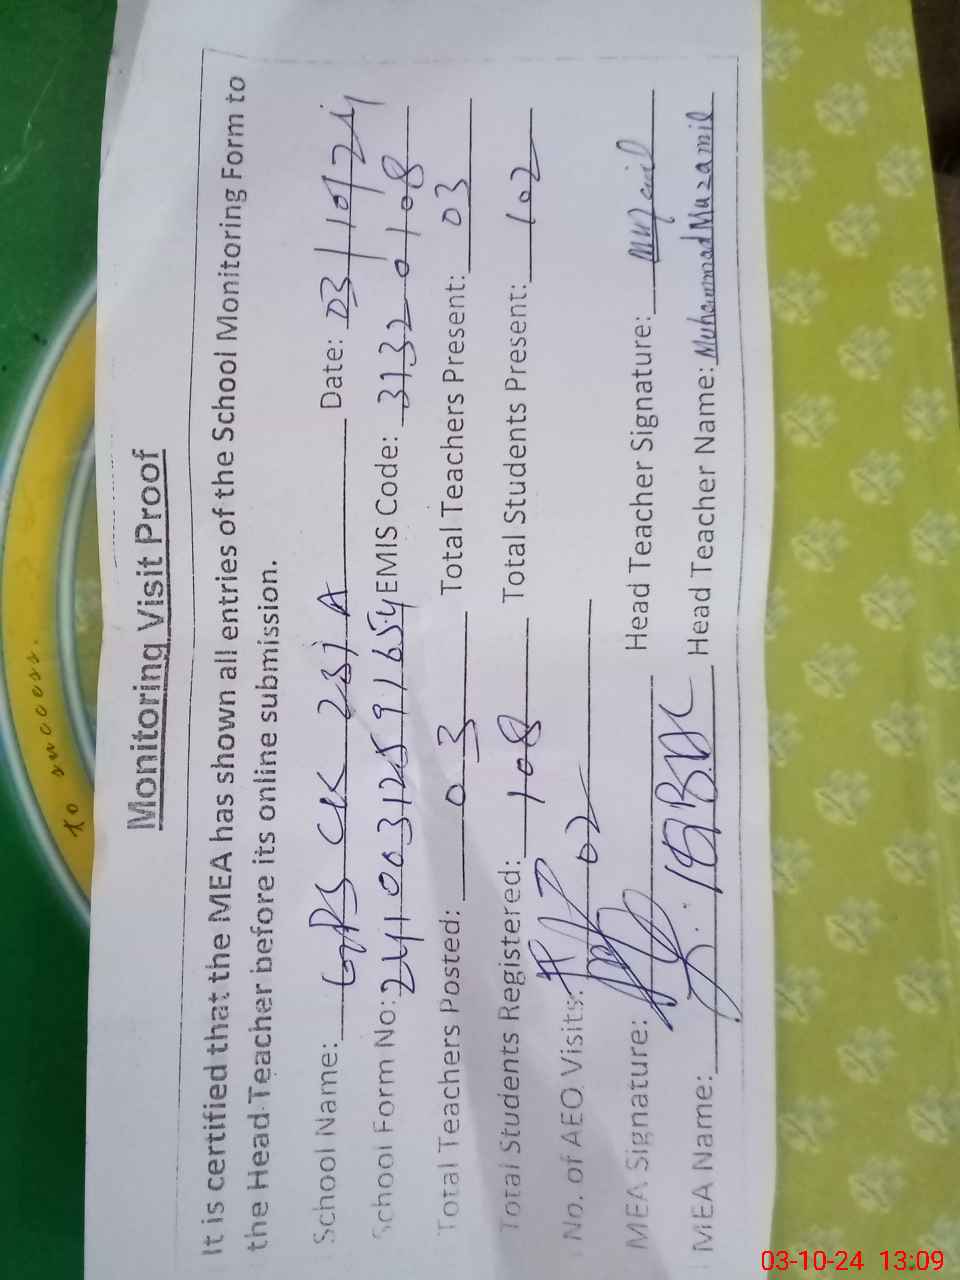 to success.
Monitoring Visit Proof
It is certified that the MEA has shown all entries of the School Monitoring Form to
the Head Teacher before its online submission.
School Name: GPS CK 231 A Date: 03/10/24
School Form No: 24100312591654 EMIS Code: 31320108
Total Teachers Posted: 03 Total Teachers Present: 03
Total Students Registered: 108 Total Students Present: 102
No. of AEO Visits: 02
MEA Signature: Head Teacher Signature:
MEA Name: Head Teacher Name: Muhammad Muzamil
03-10-24 13:09